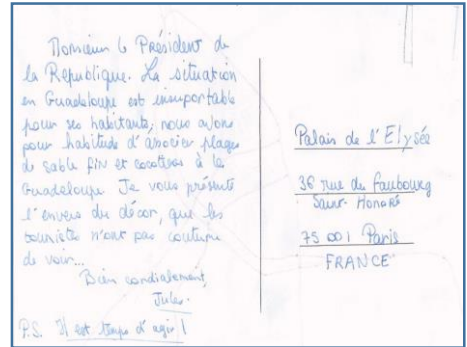 Monsieur le Président de
la République. La situation
en Guadeloupe est insuportable
pour ses habitants, nous avons
pour habitude d'associer plages
de sable fin et cocotiers à la
Guadeloupe Je vous présente
l'envers du décor, que les
touristes n'ont pas coutume
de voir...
Bien cordialement,
Jules.
P.S. Il est temps d'agir !
Palais de l'Elysée
36 rue du faubourg
Saint-Honoré
75 001 Paris
FRANCE